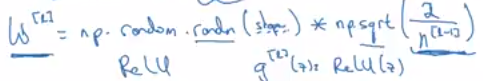 W^[l] = np.random.randn(shape) * np.sqrt(2/n^[l-1])
ReLU g^[l](z) = ReLU(z)